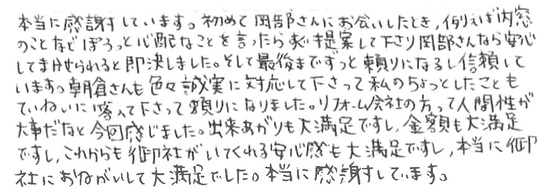 本当に感謝しています。初めて岡部さんにお会いしたとき,例えば内窓
のことなどぽろっと心配なことを言ったらすぐ提案して下さり岡部さんなら安心
してまかせられると即決しました。そして最後までずっと頼りになるし信頼して
います。朝倉さんも色々誠実に対応して下さって私のちょっとしたことも
ていねいに答って下さって頼りになりました。リフォーム会社の方って人間性が
大事だなと今回感じました。出来あがりも大満足ですし,金額も大満足
ですし,これからも御社がいてくれる安心感も大満足ですし,本当に御
社におねがいして大満足でした。本当に感謝しています。